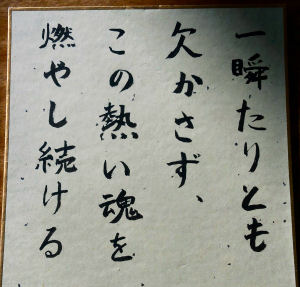 一瞬たりとも
欠かさず、
この熱い魂を
燃やし続ける